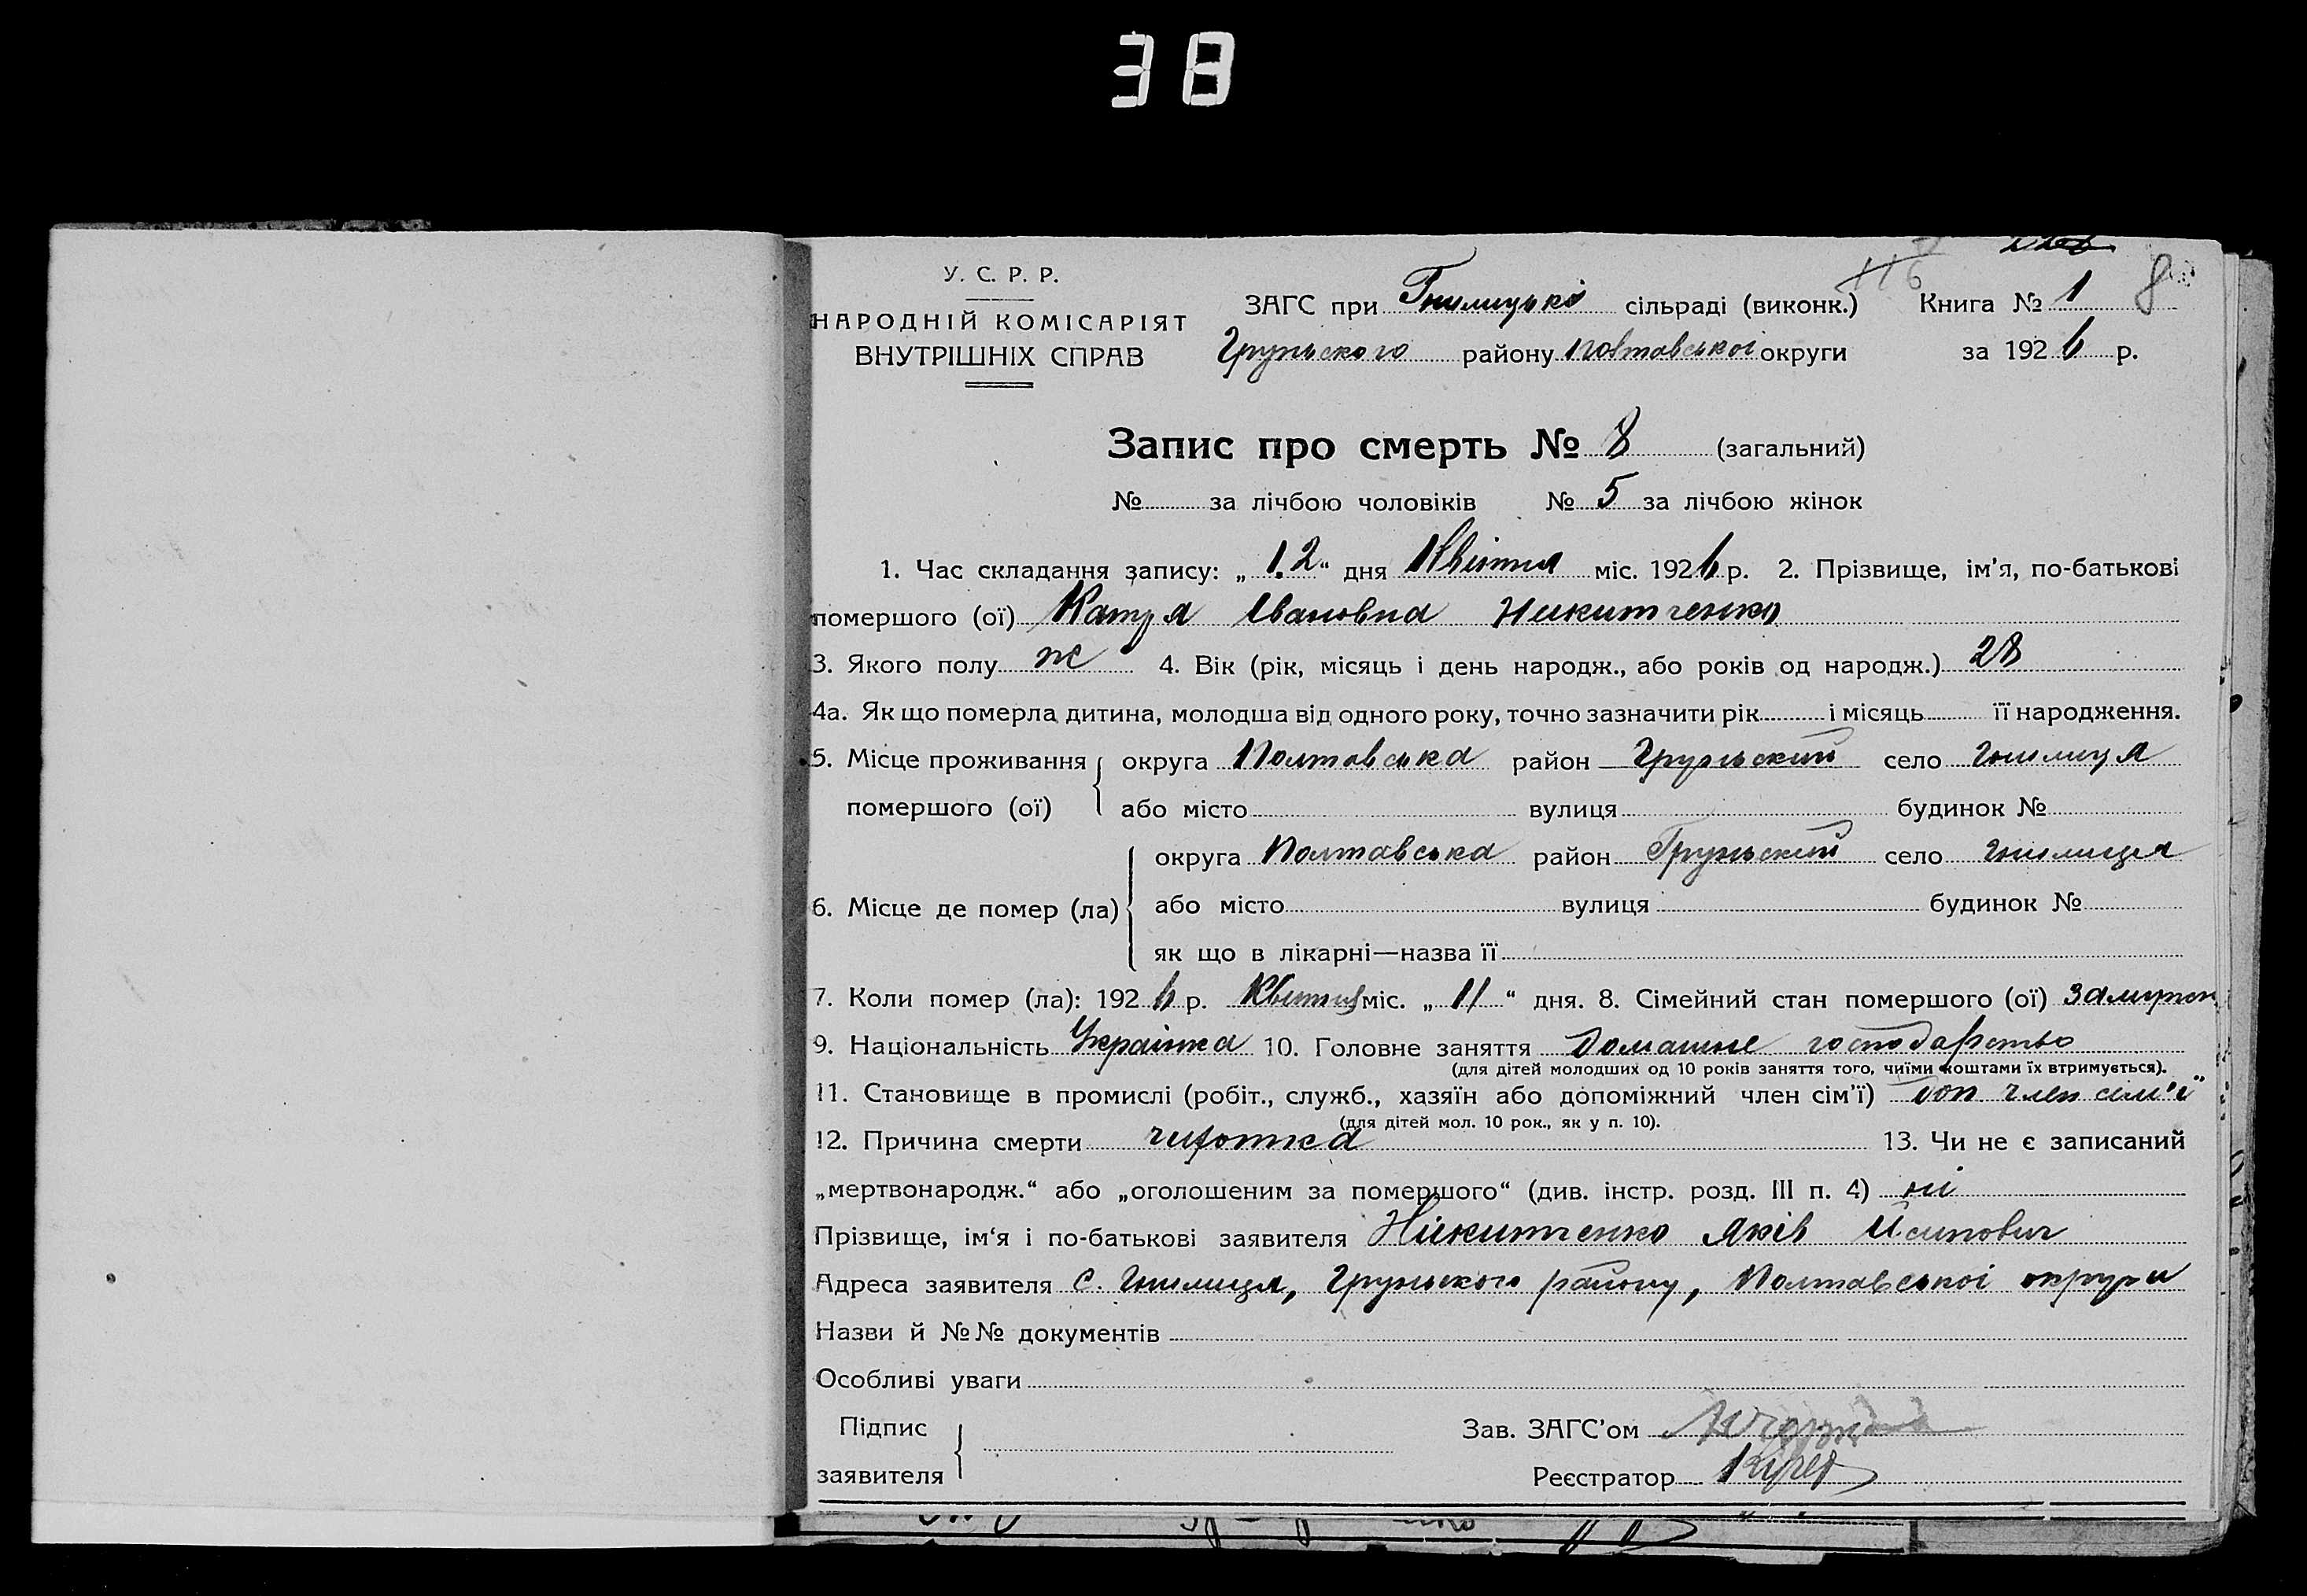 38
У. С. Р. Р.
НАРОДНІЙ КОМІСАРІЯТ
ВНУТРІШНІХ СПРАВ
ЗАГС при Гнилицькій сільраді (виконк.) 116 Книга № 1 8
Груньського району Полтавської округи за 1926 р.
Запис про смерть № 8 (загальний)
№ за лічбою чоловіків № 5 за лічбою жінок
1. Час складання запису: „12“ дня Квітня міс. 1926 р. 2. Прізвище, ім’я, по-батькові
помершого (ої) Катря Івановна Никитченко
3. Якого полу ж 4. Вік (рік, місяць і день народж., або років од народж.) 28
4а. Як що померла дитина, молодша від одного року, точно зазначити рік і місяць її народження.
5. Місце проживання помершого (ої) округа Полтавська район Груньский село Гнилиця
або місто вулиця будинок №
6. Місце де помер (ла) округа Полтавська район Груньский село Гнилиця
або місто вулиця будинок №
як що в лікарні—назва її
7. Коли помер (ла): 1926 р. Квітня міс. „11“ дня. 8. Сімейний стан помершого (ої) замужн
9. Національність Українка 10. Головне заняття Домашнє господарство
(для дітей молодших од 10 років заняття того, чиїми коштами їх втримується).
11. Становище в промислі (робіт., служб., хазяїн або допоміжний член сім’ї) доп член сім'ї
(для дітей мол. 10 рок., як у п. 10).
12. Причина смерти чихотка 13. Чи не є записаний
„мертвонародж.“ або „оголошеним за помершого“ (див. інстр. розд. III п. 4) ні
Прізвище, ім‘я і по-батькові заявителя Никитченко Яків Йсипович
Адреса заявителя с. Гнилиця, Груньского району, Полтавської округи
Назви й №№ документів
Особливі уваги
Підпис заявителя
Зав. ЗАГС’ом
Реєстратор